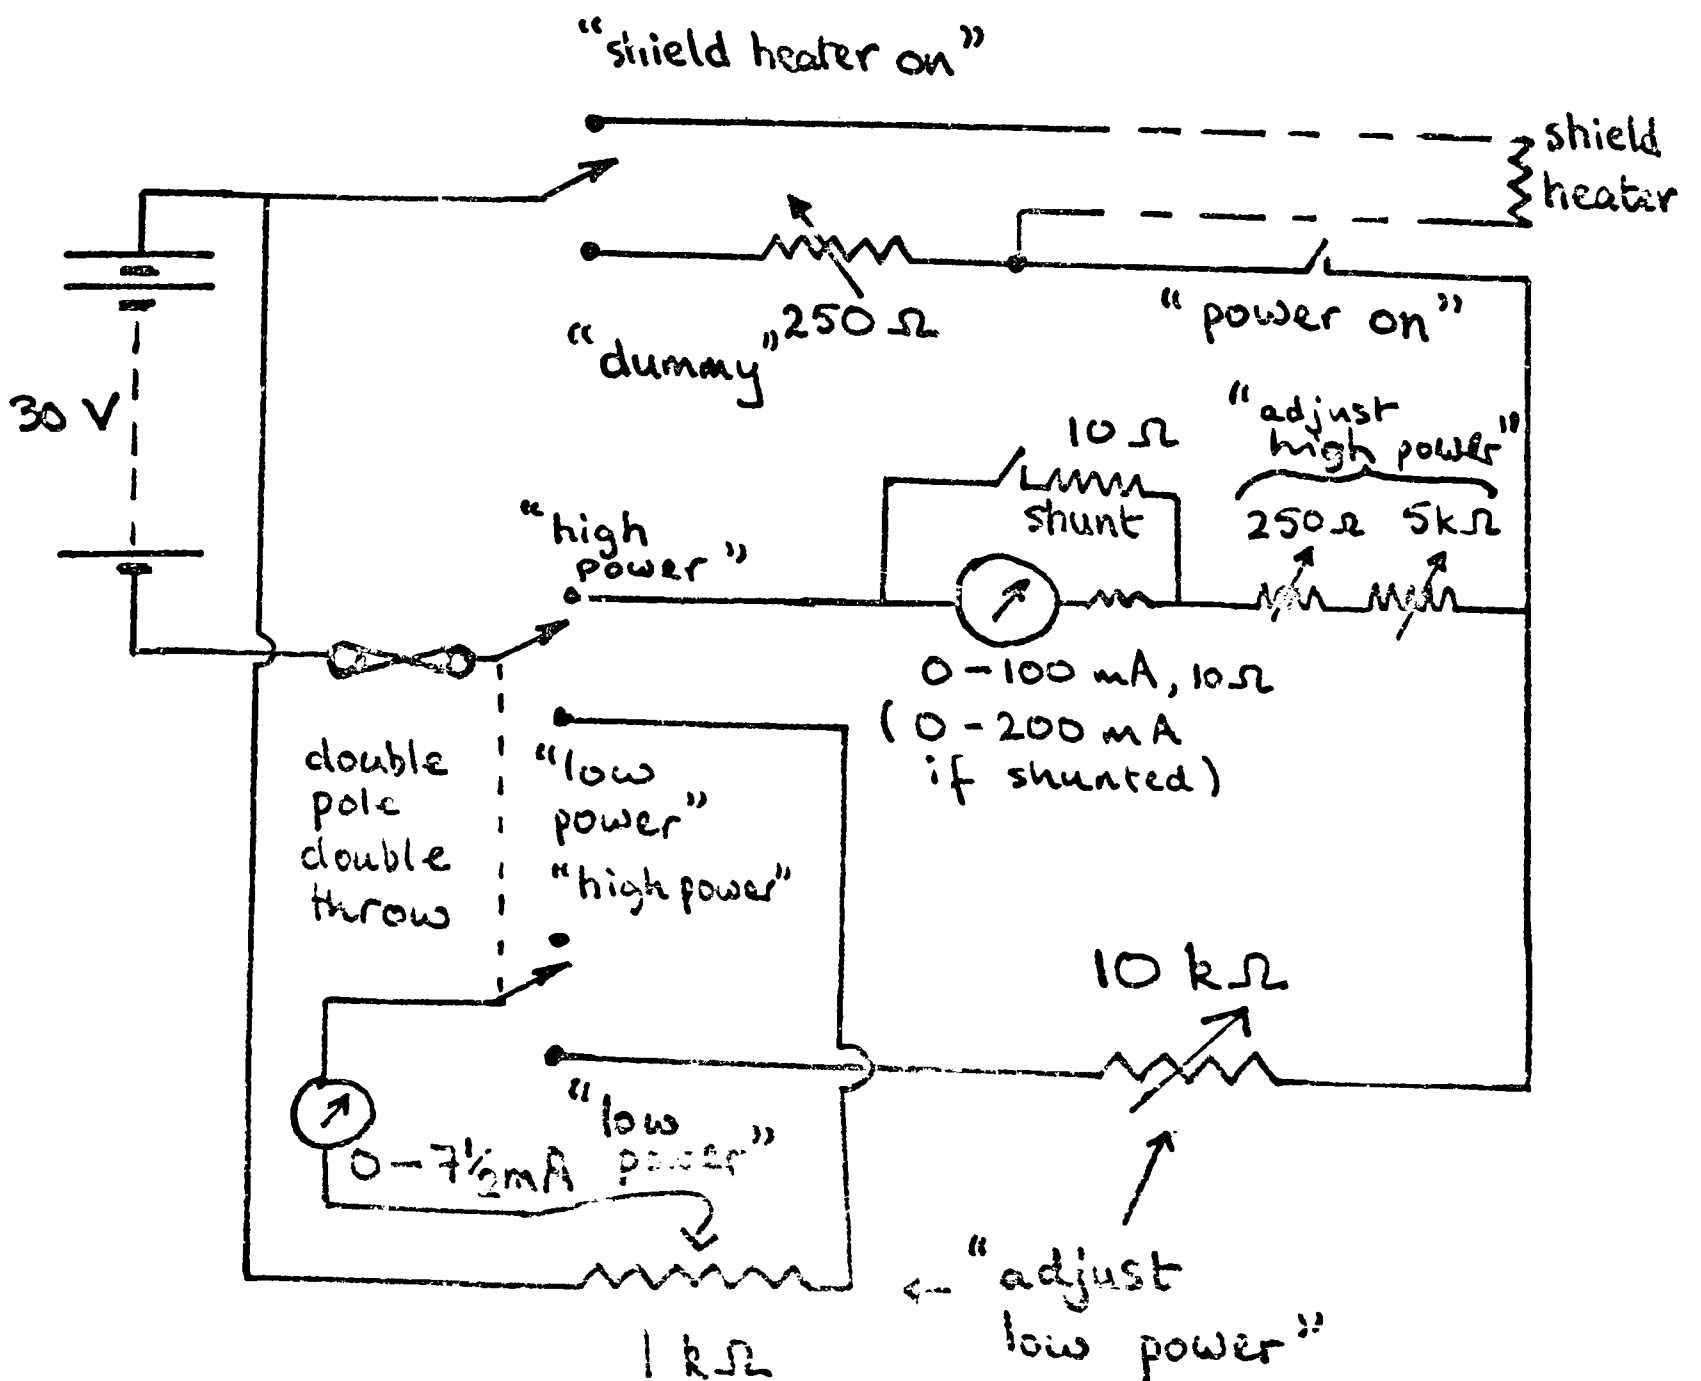 “shield heater on”
shield
heater
250 Ω
“power on”
“dummy”
30 V
“adjust
high power”
10 Ω
shunt
250 Ω 5kΩ
“high
power”
0 – 100 mA, 10 Ω
(0 – 200 mA
if shunted)
double
pole
double
throw
“low
power”
“high power”
10 kΩ
“low
power”
0 – 7½ mA
“adjust
low power”
1 kΩ